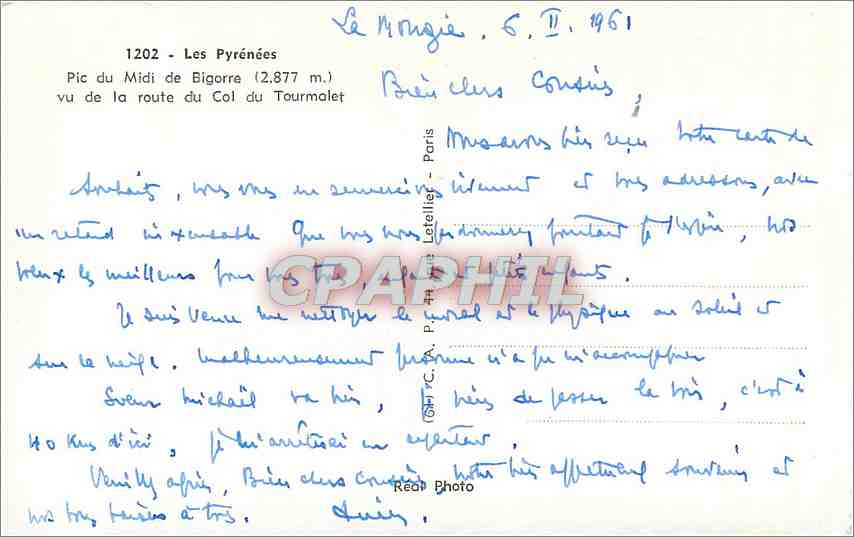 La Mongie, 6. II. 1961
1202 - Les Pyrénées
Pic du Midi de Bigorre (2.877 m.)
vu de la route du Col du Tourmalet
Bien chers Cousins,
Nous avons bien reçu votre carte de
souhaits, vous en remercions vivement et vous adressons, avec
un retard inexcusable que vous nous pardonnerez pourtant je l'espère, nos
voeux les meilleurs pour vous tous, enfants et petits enfants.
Je suis venue me nettoyer le moral et le physique au soleil et
sur la neige. Malheureusement personne n'a pu m'accompagner
Soeur Michaël va bien, je viens de passer la voir, c'est à
40 Kms d'ici, je m'arrêterai en repartant.
Veuillez agréer, Bien chers cousins, notre très affectueux souvenir et
nos bons baisers à tous.
(61) C. A. P. Rue Letellier - Paris
Real Photo
CPAPHIL